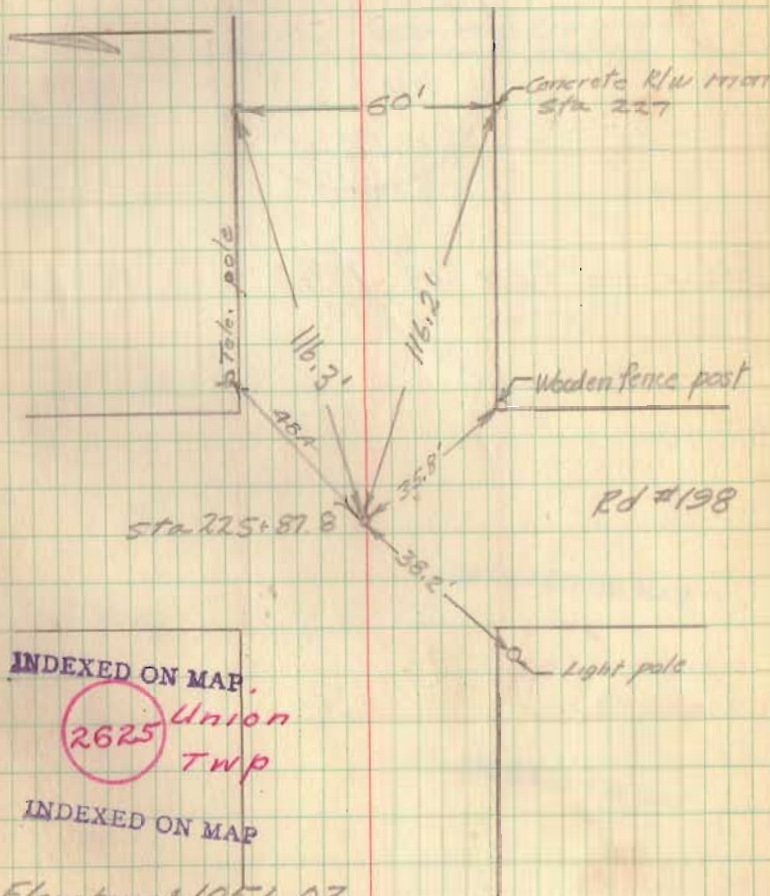 60'
Concrete R/W mon
Sta 227
Tele. pole
116.3'
116.2'
Wooden fence post
48.1
35.8'
Rd #198
Sta 225+87.8
38.2'
Light pole
INDEXED ON MAP.
2625 Union
Twp
INDEXED ON MAP